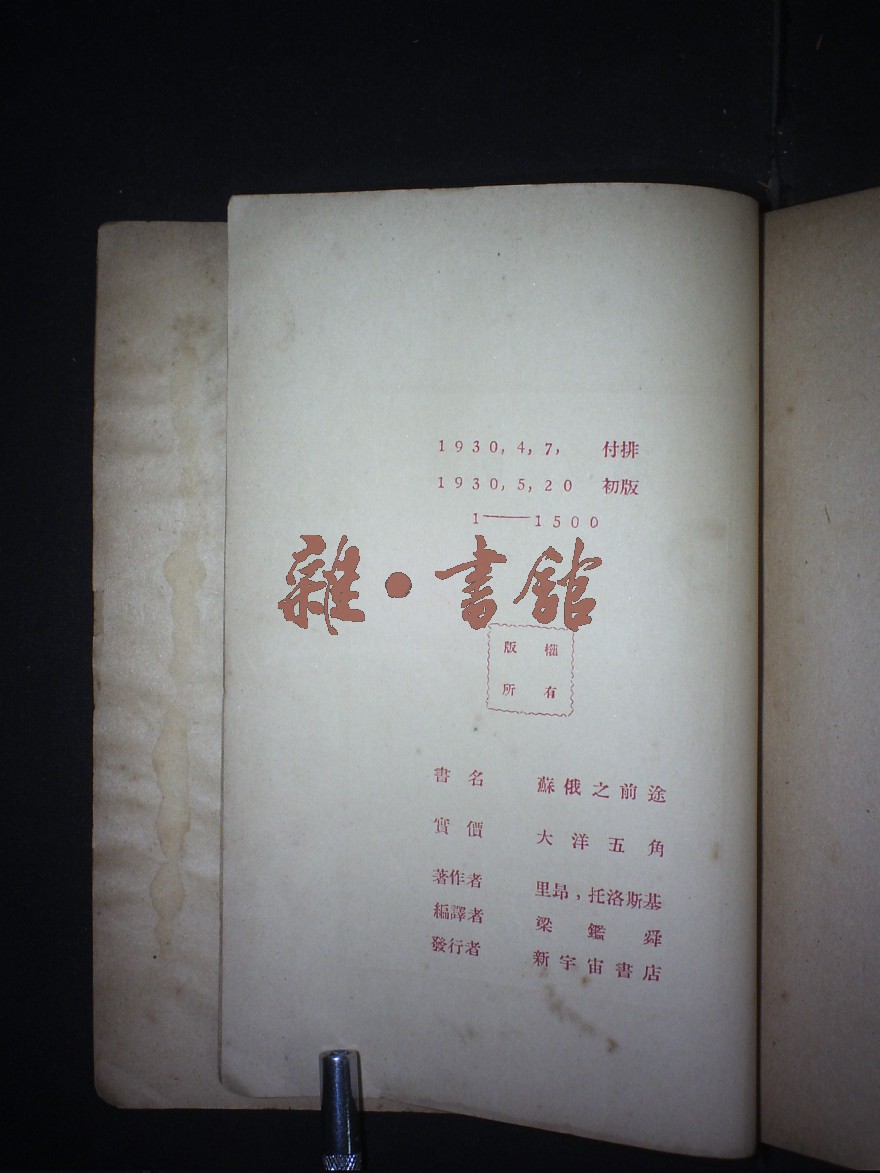 1930，4，7， 付排
1930，5，20 初版
1——1500
雜·書館
版權
所有
書名 蘇俄之前途
實價 大洋五角
著作者 里昂，托洛斯基
編譯者 梁鑑舜
發行者 新宇宙書店